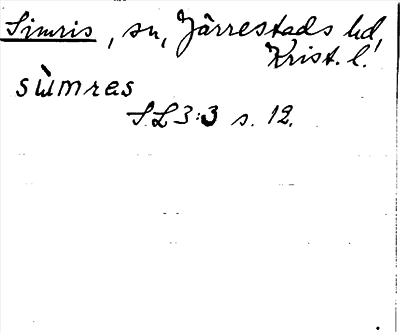 Simris, sn, Järrestads hd,
Krist. l.
sùmres
S.L 3:3 s. 12.